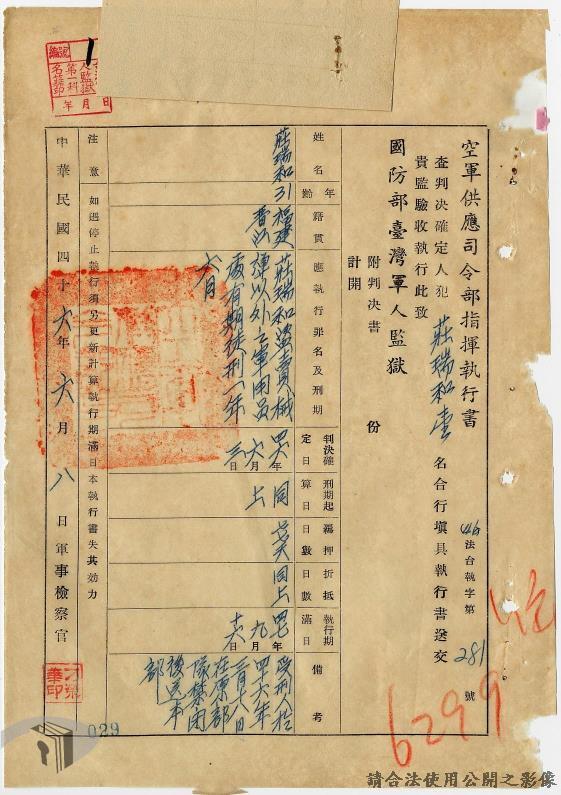 空軍供應司令部指揮執行書
46法台執字第281號
查判決確定人犯莊瑞和壹名合行填具執行書送交
貴監驗收執行此致
國防部臺灣軍人監獄
附判決書 份
計開
姓名
莊瑞和
年齡
31
籍貫
福建
應執行罪名及刑期
莊瑞和盜賣械
彈以外之軍用品
處有期徒刑一年
六月
判決確定日
四六年
六月
三日
刑期起算日
同上
羈押日數
折抵日數
同上
執行期滿日
四七年
九月
日
備考
受刑人於
四十六年
三月十八日
在原部
隊禁閉
後送本
部
注意
如遇停止執行須另更新計算執行期滿日本執行書失其効力
中華民國四十六年六月八日軍事檢察官
029
6299
請合法使用公開之影像